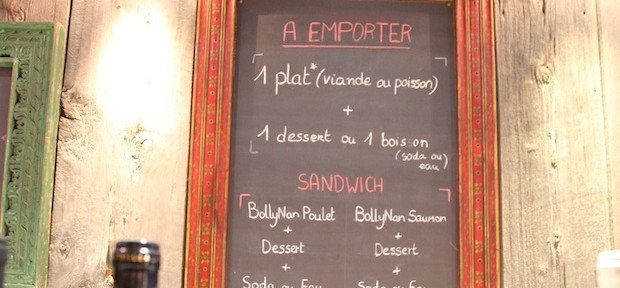 A EMPORTER
1 plat* (viande ou poisson)
+
1 dessert ou 1 boisson
(soda ou eau)
SANDWICH
BollyNan Poulet BollyNan Saumon
+ +
Dessert Dessert
+ +
Soda ou Eau Soda ou Eau